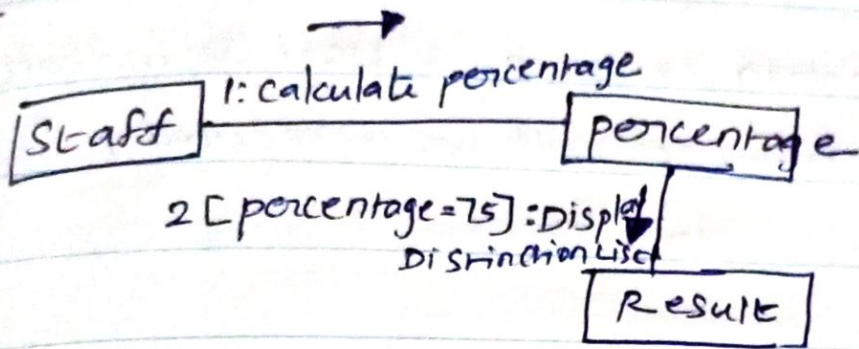 1: Calculate percentage
Staff
percentage
2 [percentage=75]: Display
Distinction List
Result